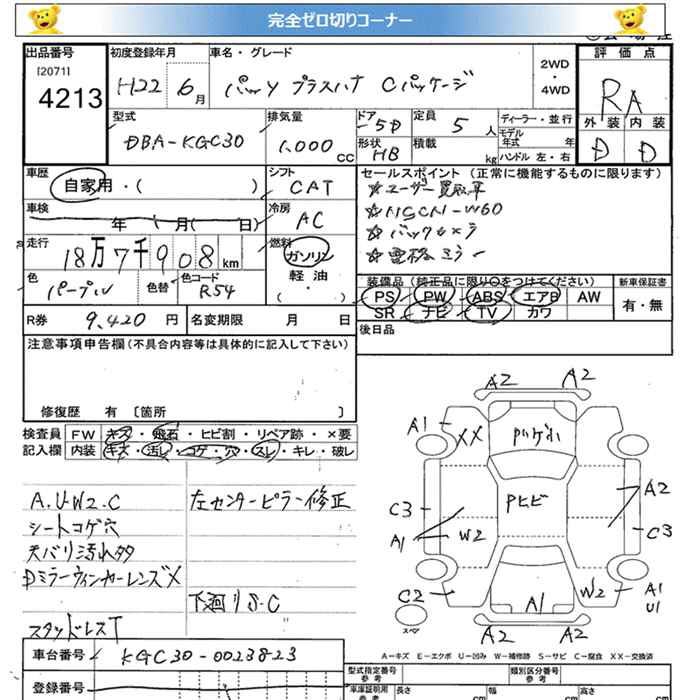 完全ゼロ切りコーナー
出品番号
[2071]
4213
初度登録年月
H22 6月
車名・グレード
パッソ プラスハナ Cパッケージ
2WD
・
4WD
評価点
RA
外装 内装
D D
型式
DBA-KGC30
排気量
1,000 CC
ドア
5D
形状
HB
定員
5 人
積載
kg
ディーラー・並行
モデル年式 年
ハンドル 左・右
車歴
自家用・( )
車検
年 月( 日)
走行
18万7千908km
色
パープル
色替
色コード
R54
シフト
CAT
冷房
AC
燃料
ガソリン
軽油
( ・ )
セールスポイント(正常に機能するものに限ります)
☆ユーザー買取車
☆NSCN-W60
☆バックカメラ
☆電格ミラー
装備品(純正品に限り○をつけてください)
PS PW ABS エアB AW
SR ナビ TV カワ
新車保証書
有・無
R券 9,420 円
名変期限 月 日
後日品
注意事項申告欄(不具合内容等は具体的に記入して下さい)
修復歴 有 〔箇所 〕
検査員記入欄
FW キズ・飛石・ヒビ割・リペア跡・×要
内装 キズ・汚レ・コゲ・穴・スレ・キレ・破レ
A.U.W2.C
シートコゲ穴
天バリ汚れ多
Dミラーウィンカーレンズ×
スタッドレスT
左センターピラー修正
下廻りS.C
A2 A2
A1 XX
C3
A1
W2
Pヒビ
A2
C3
C2
A1
W2
A1
U1
A2 A2
スペア
A-キズ E-エクボ U-凹み W-補修跡 S-サビ C-腐食 XX-交換済
車台番号 KGC30-0023823
登録番号
型式指定番号
参考
類別区分番号
参考
車庫証明用
参考
長さ cm
幅 cm
高さ cm